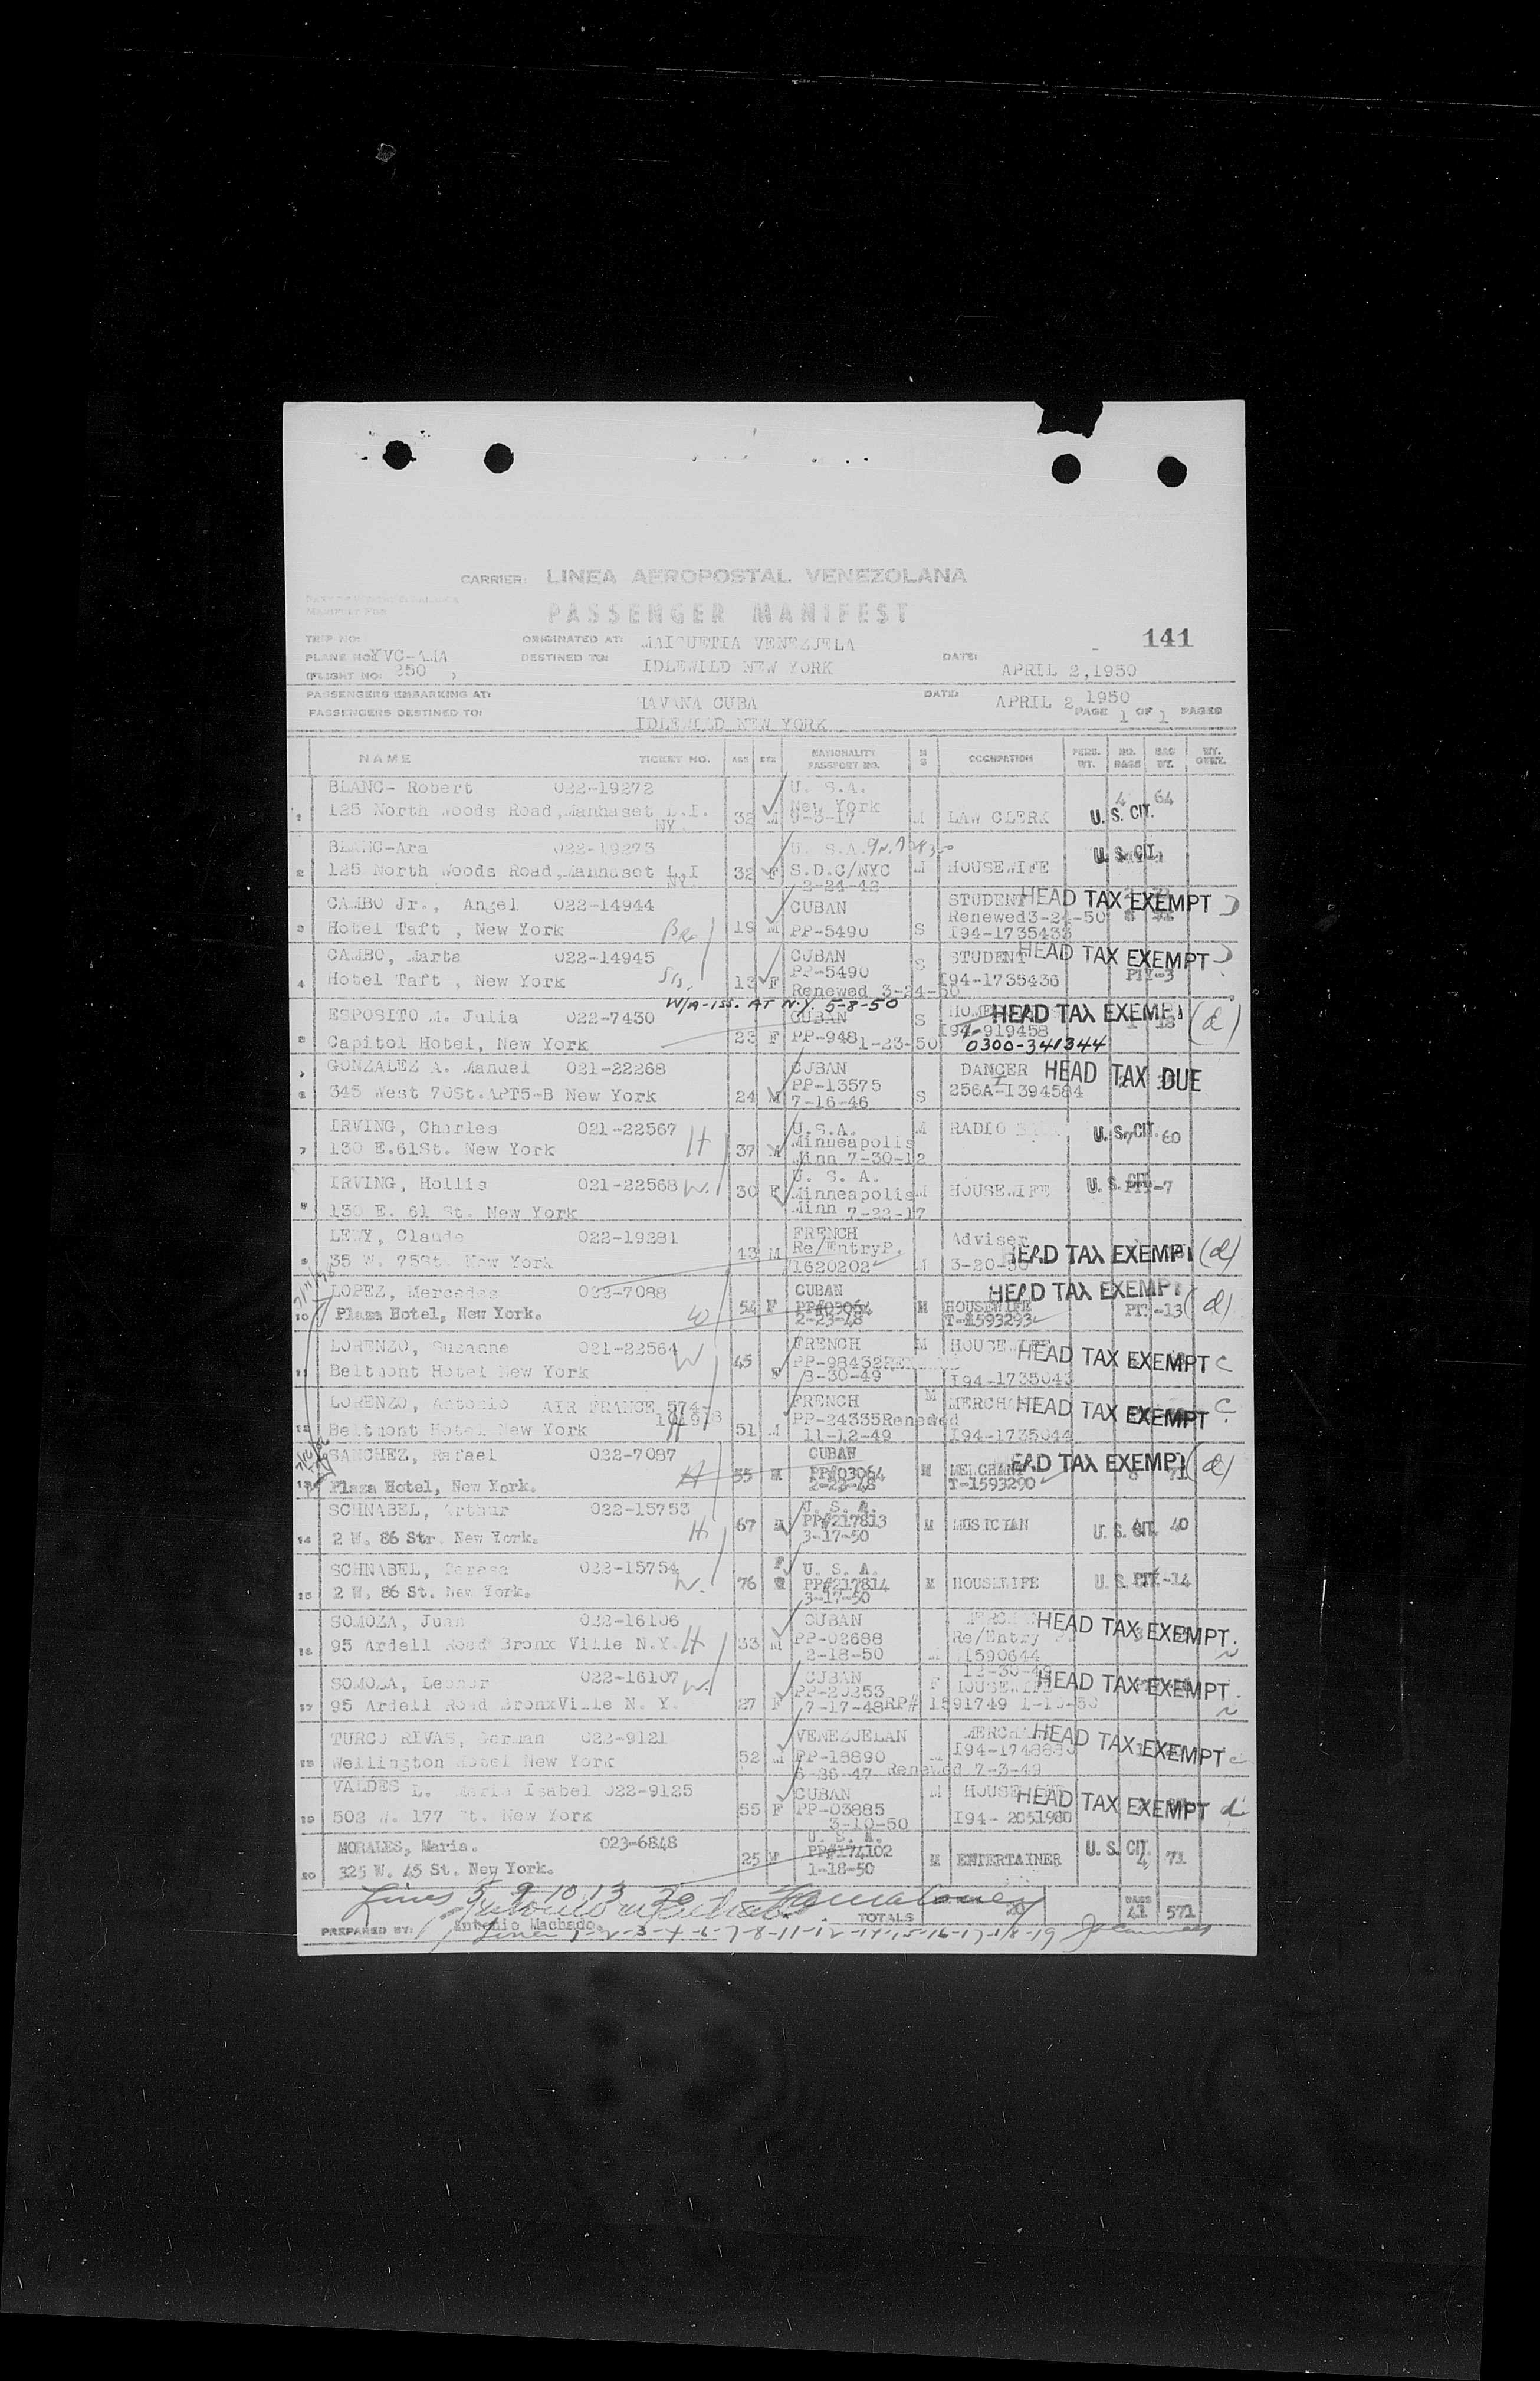 CARRIER: LINEA AEROPOSTAL VENEZOLANA
PASSENGER MANIFEST
141
TRIP NO:
ORIGINATED AT: MAIQUETIA VENEZUELA
PLANE NO: YVC-AMA
DESTINED TO: IDLEWILD NEW YORK
DATE: APRIL 2,1950
(FLIGHT NO: 250 )
PASSENGERS EMBARKING AT: HAVANA CUBA
DATE: APRIL 2 1950
PASSENGERS DESTINED TO: IDLEWILD NEW YORK
PAGE 1 OF 1 PAGES
NAME TICKET NO. AGE SEX NATIONALITY PASSPORT NO. M S OCCUPATION PERS. WT. NO. BAGS BAG WT.
BLANC- Robert 022-19272 U. S.A.
1 125 North Woods Road,Manhaset L.I. NY. 32 M New York 9-3-17 M LAW CLERK U. S. CIT. 4 64
BLANC-Ara 022-19273 U. S.A.
2 125 North Woods Road,Manhaset L.I NY. 32 F S.D.C/NYC 2-24-42 M HOUSEWIFE U. S. CIT.
CAMBO Jr., Angel 022-14944 CUBAN STUDENT HEAD TAX EXEMPT
3 Hotel Taft , New York Br. 19 M PP-5490 S Renewed 3-24-50 I94-1735433
CAMBO, Marta 022-14945 CUBAN STUDENT HEAD TAX EXEMPT
4 Hotel Taft , New York Sis. 13 F PP-5490 Renewed 3-24-50 S I94-1735436 PTY-3
W/A-ISS. AT N.Y. 5-8-50
ESPOSITO M. Julia 022-7430 CUBAN S HEAD TAX EXEMPT (d)
5 Capitol Hotel, New York 23 F PP-948 1-23-50 I94-919458 0300-341344
GONZALEZ A. Manuel 021-22268 CUBAN DANCER HEAD TAX DUE
6 345 West 70St.APT5-B New York 24 M PP-13575 7-16-46 S 256A-1394584
IRVING, Charles 021-22567 H U.S.A. M RADIO U. S. CIT. 60
7 130 E.61St. New York 37 M Minneapolis Minn 7-30-12
IRVING, Hollis 021-22568 W. U. S. A.
8 130 E. 61 St. New York 30 F Minneapolis Minn 7-22-17 M HOUSEWIFE U. S. CIT. PTY-7
LEVY, Claude 022-19281 FRENCH Adviser
9 35 W. 75St. New York 43 M Re/EntryP. 1620202 M 3-20-50 HEAD TAX EXEMPT (d)
LOPEZ, Mercedes 022-7088 CUBAN HEAD TAX EXEMPT
10 Plaza Hotel, New York. W 54 F PP#03064 2-23-48 M HOUSEWIFE T-1593293 PTY-13 (d)
LORENZO, Suzanne 021-22564 W FRENCH M HOUSEWIFE HEAD TAX EXEMPT c
11 Beltmont Hotel New York 45 F PP-98432RENEWED 8-30-49 I94-1735043
LORENZO, Antonio AIR FRANCE 574-101978 FRENCH M MERCHANT HEAD TAX EXEMPT c
12 Beltmont Hotel New York H 51 M PP-24335Renewed 11-12-49 I94-1735044
SANCHEZ, Rafael 022-7087 CUBAN HEAD TAX EXEMPT (d)
13 Plaza Hotel, New York. H 55 M PP#03064 2-23-48 M MERCHANT T-1593290 71
SCHNABEL, Arthur 022-15753 U. S. A.
14 2 W. 86 Str. New York. H 67 M PP#217813 3-17-50 M MUSICIAN U. S. CIT. 40
SCHNABEL, Teresa 022-15754 F U. S. A.
15 2 W. 86 St. New York. W. 76 PP#217814 3-17-50 M HOUSEWIFE U. S. CIT. PTY-14
SOMOZA, Juan 022-16106 CUBAN HEAD TAX EXEMPT
16 95 Ardell Road Bronx Ville N.Y. H 33 M PP-02688 2-18-50 M Re/Entry P. 1590644 12-30-49
SOMOZA, Leonor 022-16107 W. CUBAN HOUSEWIFE HEAD TAX EXEMPT
17 95 Ardell Road BronxVille N. Y. 27 F PP-20253 7-17-48 RP# 1591749 1-10-50
TURCO RIVAS, German 022-9121 VENEZUELAN MERCHANT HEAD TAX EXEMPT c
18 Wellington Hotel New York 52 M PP-18890 M I94-1748880 6-26-47 Renewed 7-3-49
VALDES L. Maria Isabel 022-9125 CUBAN M HOUSEWIFE HEAD TAX EXEMPT d
19 502 W. 177 St. New York 55 F PP-03885 3-10-50 I94-2051980
MORALES, Maria. 023-6848 U. S. A.
20 325 W. 45 St. New York. 25 PP#174102 1-18-50 M ENTERTAINER U. S. CIT. 4 71
Lines 5 9 10 13 20
TOTALS 20 BAGS 41 571
PREPARED BY: Antonio Machado.
Lines 1-2-3-4-6-7-8-11-12-14-15-16-17-18-19